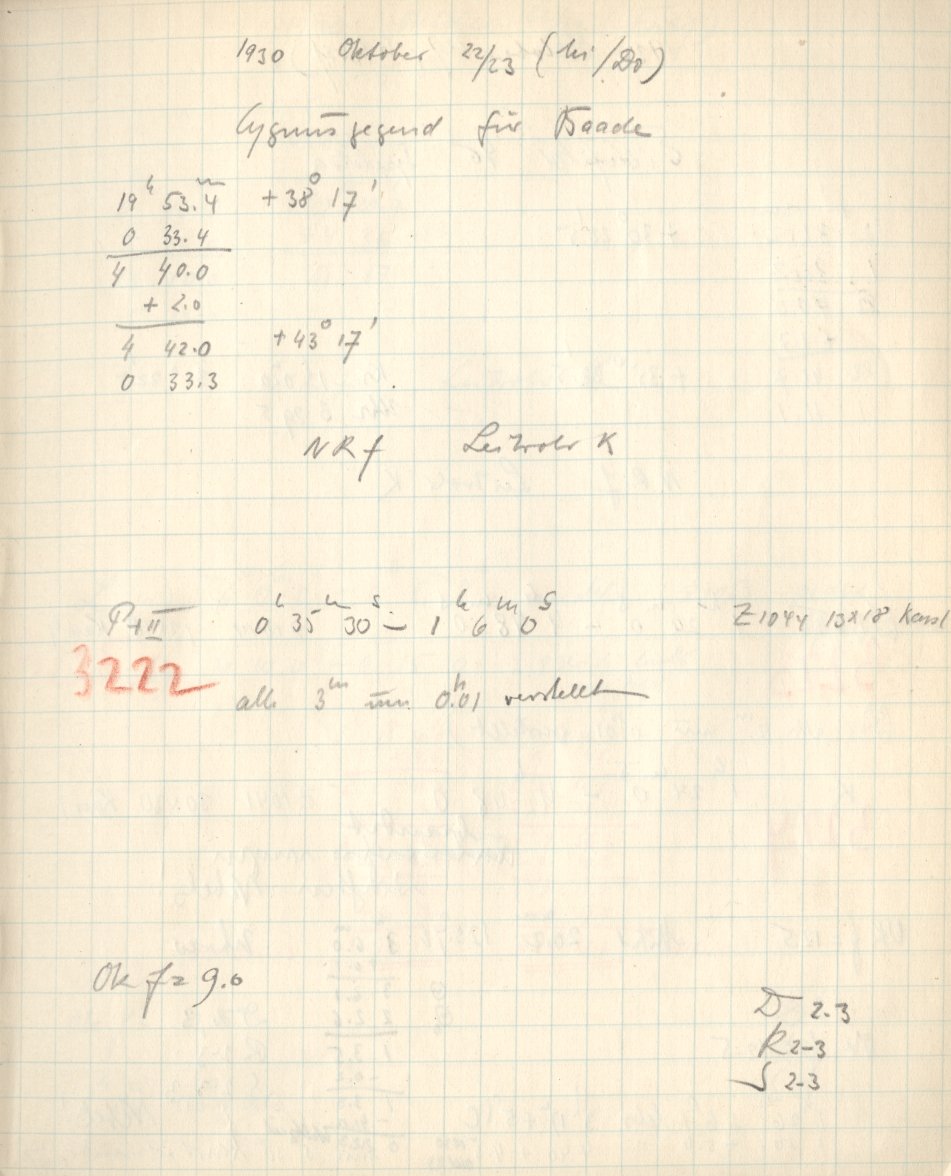 1930 Oktober 22/23 ( /Do)
Cygnusgegend für Baade
19h 53.4m +38° 17'
0 33.4
4 40.0
+ 2.0
4 42.0 +43° 17'
0 33.3
NRf Leitrohr K
0h 35m 30s – 1h 6m 0s Z1044 13x18
3222
alle 3m um 0h.01 verstellt
Ok f= 9.0
D 2.3
R 2-3
S 2-3